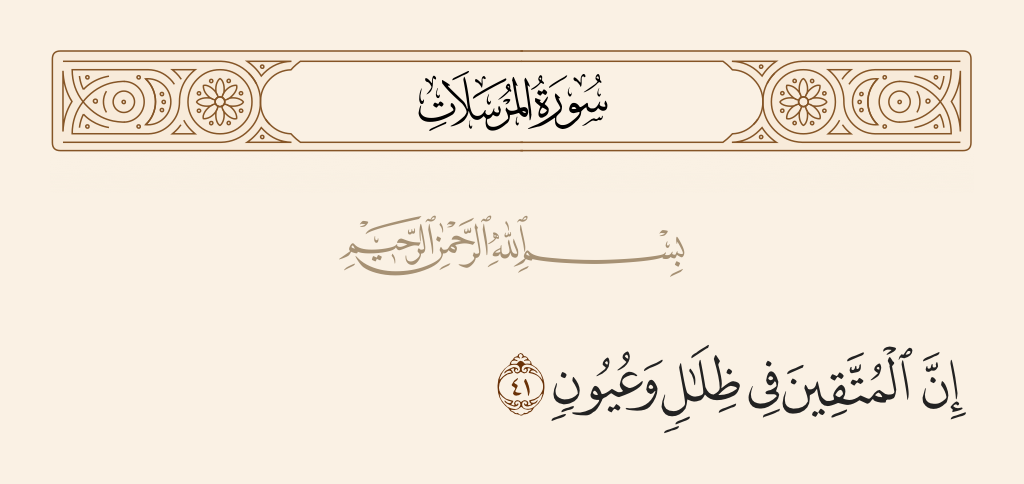 سُورَةُ المُرْسَلَاتِ
بِسْمِ ٱللَّهِ ٱلرَّحْمَٰنِ ٱلرَّحِيمِ
إِنَّ ٱلْمُتَّقِينَ فِى ظِلَٰلٍ وَعُيُونٍ ٤١